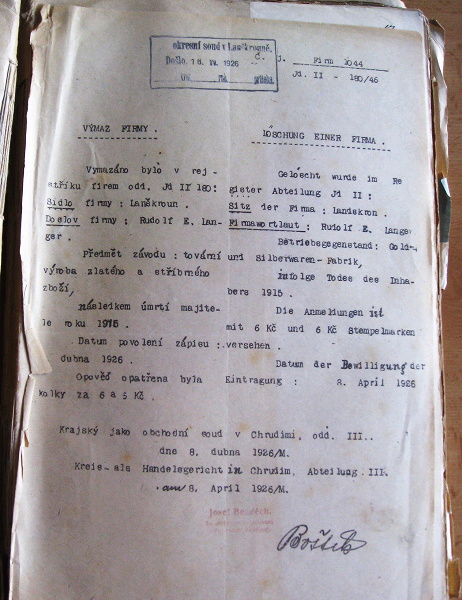 okresní soud v Lanškrouně.
Došlo 16. IV. 1926
Č. j. Firm 1044
Jd II - 180/46
VÝMAZ FIRMY.
Vymazáno bylo v rej-
stříku firem odd. Jd II 180:
Sídlo firmy : Laněkroun.
Doslov firmy : Rudolf E. Lan-
ger.
Předmět závodu : tovární
výroba zlatého a stříbrného
zboží,
následkem úmrtí majite-
le roku 1915 .
Datum povolení zápisu :
dubna 1926 .
Opověď opatřena byla
kolky za 6 a 6 Kč .
LÖSCHUNG EINER FIRMA.
Gelöscht wurde im Re
gister Abteilung Jd II :
Sitz der Firma : Laniskron.
Firmawortlaut : Rudolf E. Langer
Betriebsgegenstand: Gold-
und Silberwaren-Fabrik,
infolge Todes des Inha-
bers 1915 .
Die Anmeldungen ist
mit 6 Kč und 6 Kč Stempelmarken
versehen .
Datum der Bewilligung der
Eintragung : 8. April 1926
Krajský jako obchodní soud v Chrudimi, odd. III..
dne 8. dubna 1926/M.
Kreis- als Handelsgericht in Chrudim, Abteilung III.
am 8. April 1926/M.